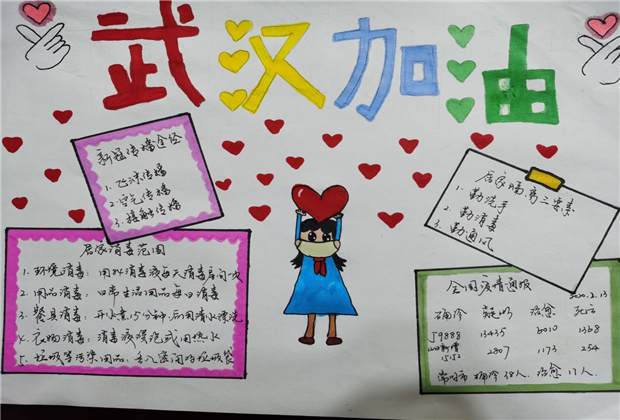 武汉加油
新冠传播途经
1. 飞沫传播
2. 空气传播
3. 接触传播
居家隔离三要素
1. 勤洗手
2. 勤消毒
3. 勤通风
居家消毒范围
1. 环境消毒: 用 消毒液每天消毒房间 次
2. 用品消毒: 日常生活用品每日消毒
3. 餐具消毒: 开水煮15分钟后用清水漂洗
4. 衣物消毒: 消毒液浸泡或用热水
5. 垃圾 污染用品: 垃圾袋
全国疫情通报
2020.2.13
确诊 疑似 治愈 死亡
59888 13435 6010 1368
新增
15152 2807 1173 254
确诊 人, 治愈 人.